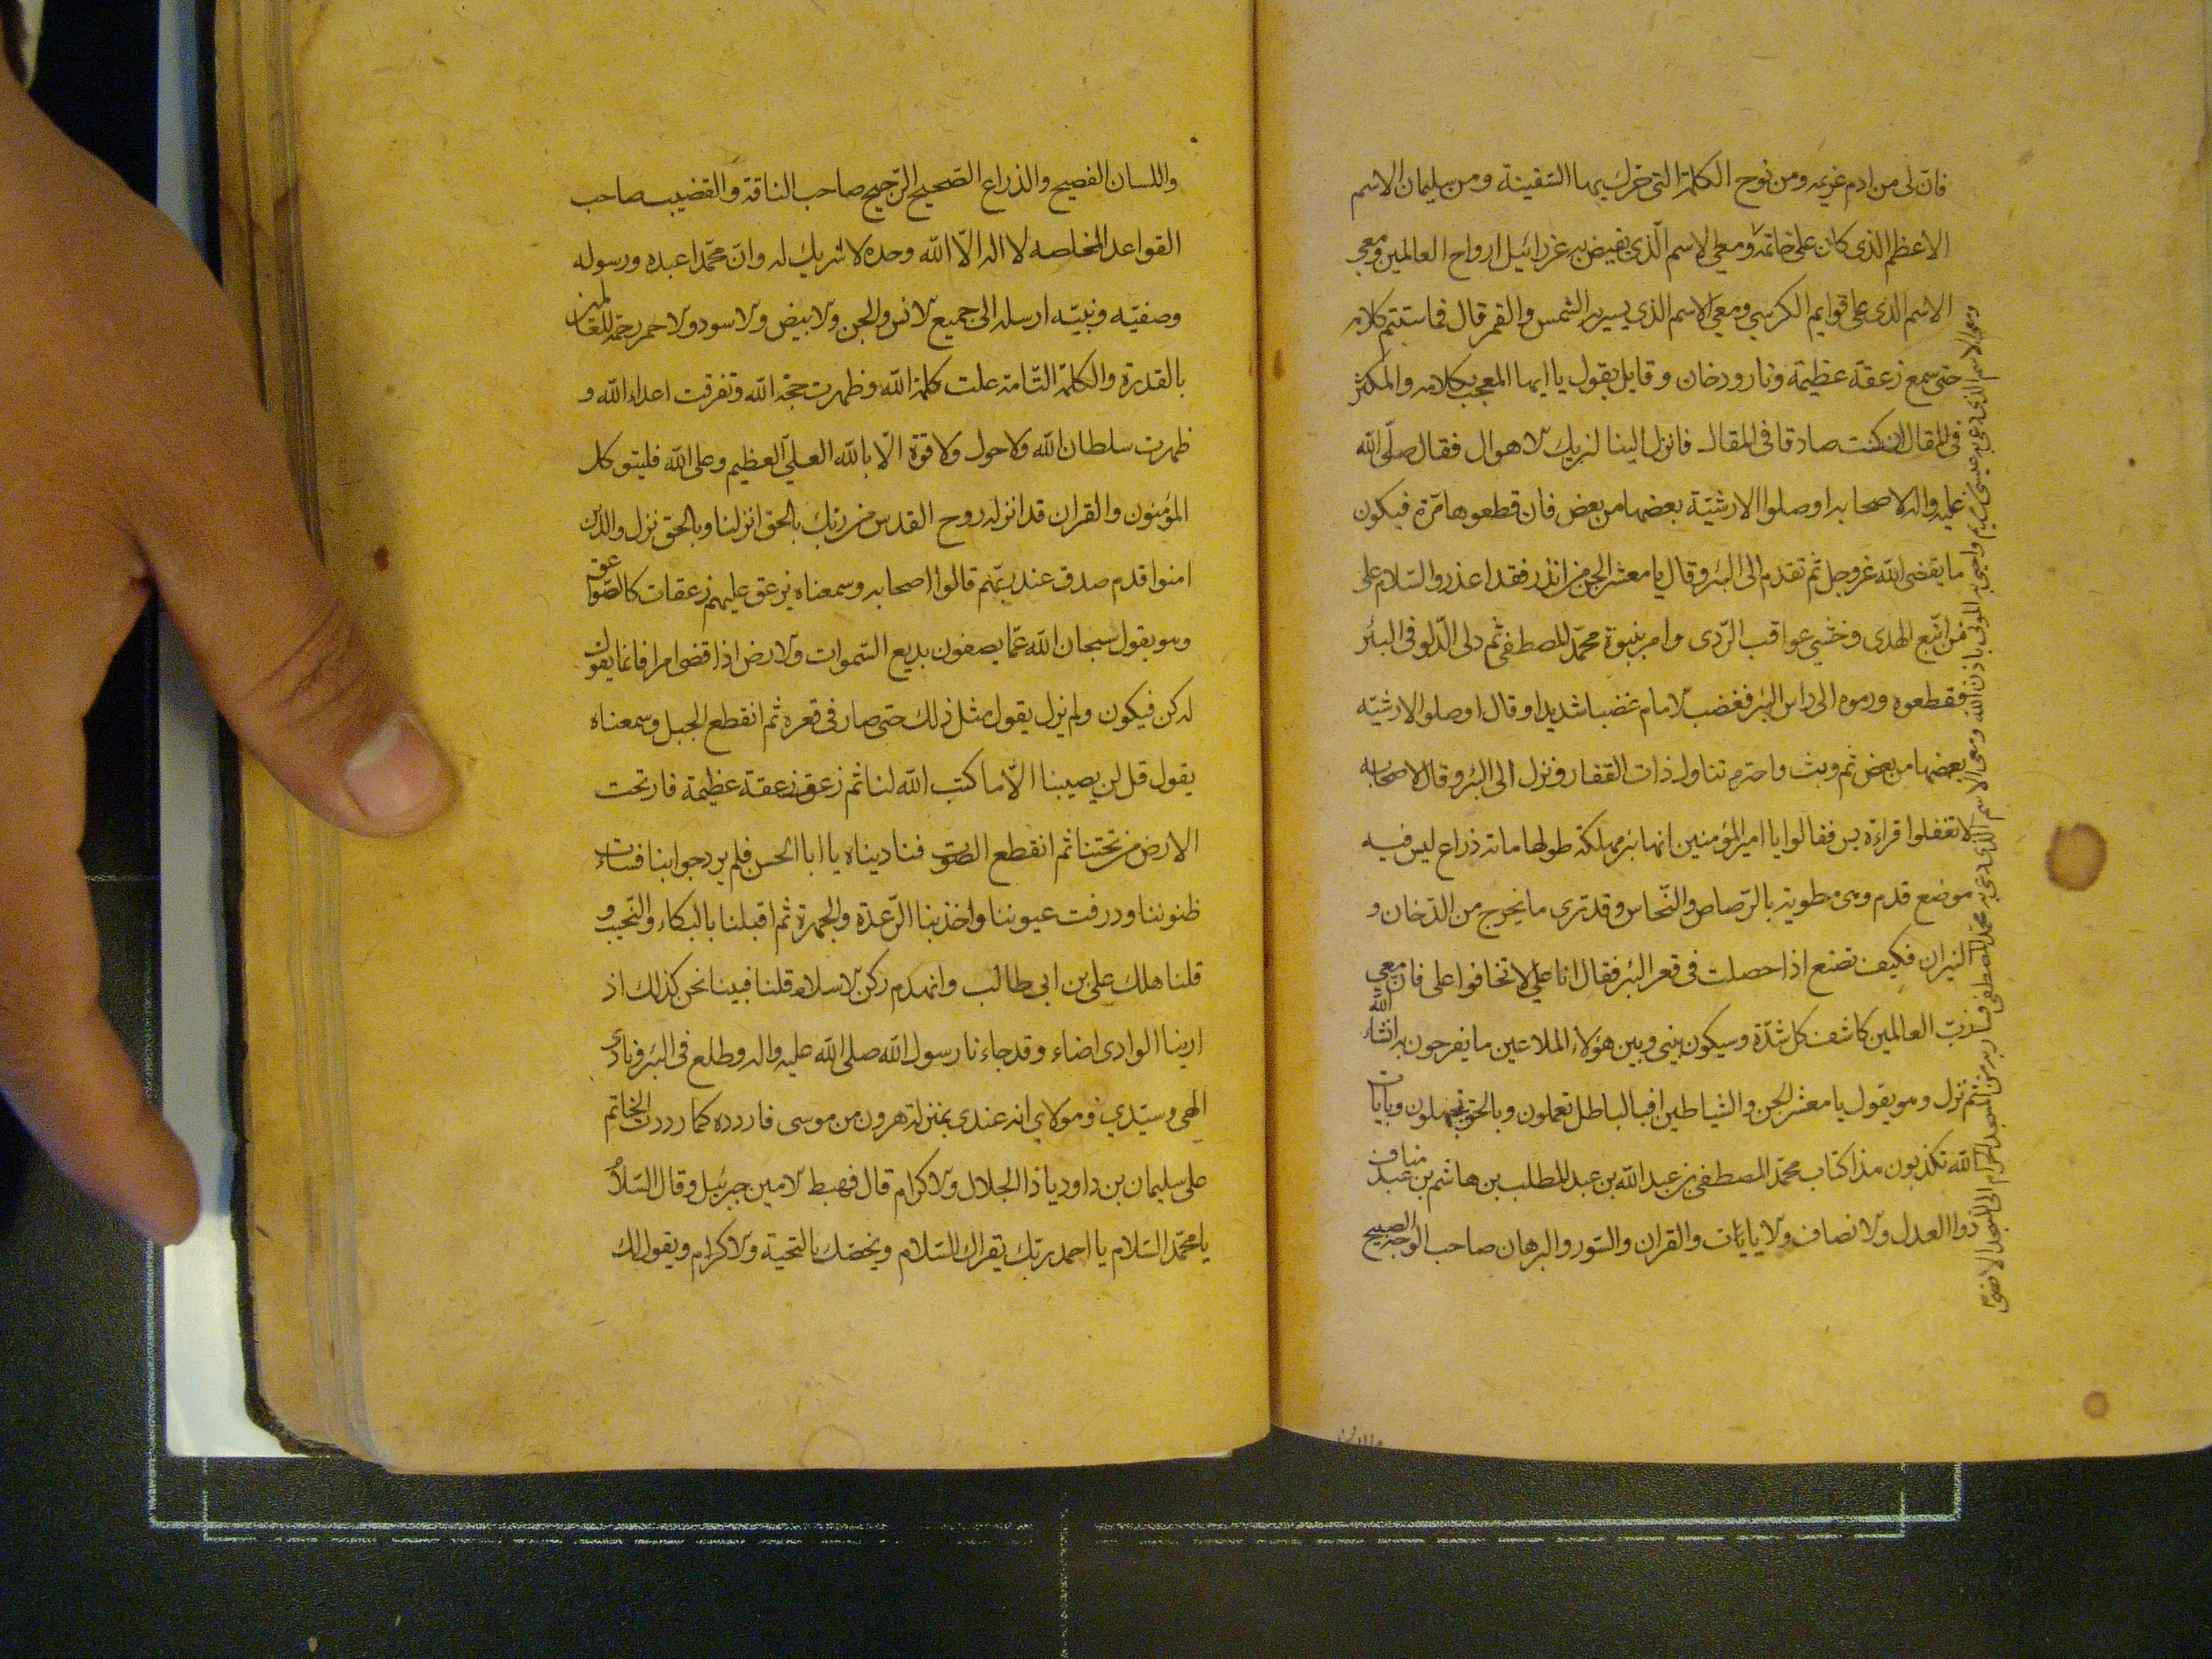 فان لى من ادم عزيمه ومن نوح الكلمة التى حرك بها السفينة ومن سليمان الاسم
الاعظم الذى كان على خاتمه ومعى الاسم الّذى يقبض به عزرائيل ارواح العالمين ومعى
الاسم الذى على قوايم الكرسى ومعى الاسم الذى يسير به الشمس والقمر قال فما ستتم كلامه
حتى سمع زعقة عظيمة ونار ودخان وقايل يقول يا ايها المعجب بكلامه والمكثر
فى المقال ان كنت صادقا فى المقال فانزل الينا لنريك لاهوال فقال صلّى الله
عليه واله لاصحابه اوصلوا الارشيّة بعضها من بعض فان قطعوها مرّة فيكون
ما يقضى الله عز وجل ثم تقدم الى البئر وقال يا معشر الجن من انذر فقد اعذر والسّلام على
من اتّبع الهدى وخشى عواقب الرّدى وامر بنبوة محمّد المصطفى ثم دلى الدّلو فى البئر
فقطعوه ورموه الى راس البئر فغضب لامام غضبا شديدا وقال اوصلوا الارشيّه
بعضها من بعض ثم وبث واحترم تناول ذات القفار ونزل الى البئر وقال لاصحابه
لا تغفلوا قراءة يس فقالوا يا امير المؤمنين انها بئر مهلكة طولها مائة ذراع ليس فيه
موضع قدم وهى مطوية بالرّصاص والنّحاس وقد ترى ما يخرج من الدّخان و
النيران فكيف تصنع اذا حصلت فى قعر البئر فقال انا على لا تخافوا على فان معى
رب العالمين كاشف كل شدّة وسيكون بينى وبين هؤلاء الملاعين ما يفرحون به انشاء الله
ثم نزل وهو يقول يا معشر الجن والشياطين افبالباطل تعملون وبالحق تجهلون وبايات
الله تكذبون هذا كتاب محمّد المصطفى بن عبد الله بن عبد المطلب بن هاشم بن عبد مناف
ذوا العدل ولانصاف ولايايات والقران والسّور والبرهان صاحب الوجه الصبيح
ومعى الاسم الذى دعى به عيسى بن مريم واحيى به الموتى باذن الله ومعى الاسم الذى دعى به محمّد المصطفى فسار به من المسجد الحرام الى المسجد الاقصى
واللسان الفصيح والذراع الصّحيح الرّجيح صاحب الناقة والقضيب صاحب
القواعد المخلصه لا اله الّا اللّه وحده لا شريك له وانّ محمّدا عبده ورسوله
وصفيّه ونبيّه ارسله الى جميع لانس والجن ولابيض ولاسود ولاحمر رحمة للعالمين
بالقدرة والكلمة التّامة علت كلمة الله وظهرت حجّة الله وتفرقت اعداء الله و
ظهرت سلطان اللّه ولا حول ولا قوّة الّا باللّه العليّ العظيم وعلى اللّه فليتوكل
المؤمنون والقران قد انزله روح القدس من ربّك بالحق انزلنا وبالحق نزل والذين
امنوا قدم صدق عند ربّهم قالوا اصحابه وسمعناه يزعق عليهم زعقات كالصّواعق
وهو يقول سبحان الله عمّا يصفون بديع السّموات ولارض اذا قضى امرا فانما يقول
له كن فيكون ولم يزل يقول مثل ذلك حتى صار فى قعره ثم انقطع الحبل وسمعناه
يقول قل لن يصيبنا الّا ما كتب الله لنا ثم زعق زعقة عظيمة فارتجت
الارض من تحتنا ثم انقطع الصّوت فناديناه يا ابا الحسن فلم يرد جوابنا فساءت
ظنوننا ودرفت عيوننا واخذبنا الرّعدة والجهرة ثم اقبلنا بالبكاء والنّحيب و
قلنا هلك على بن ابى طالب وانهدم ركن لاسلام قلنا فبينا نحن كذلك اذ
ارينا الوادى اضاء وقد جاءنا رسول الله صلى الله عليه واله وطلع فى البئر ونادى
الهى وسيّدي ومولاى انه عندى بمنزلة هرون من موسى فاردده كما رددت الخاتم
على سليمان بن داود يا ذا الجلال ولاكرام قال فهبط لامين جبرئيل وقال السّلام
يا محمّد السّلام يا احمد ربّك يقراك السّلام ويخصّك بالتحية ولاكرام ويقول لك